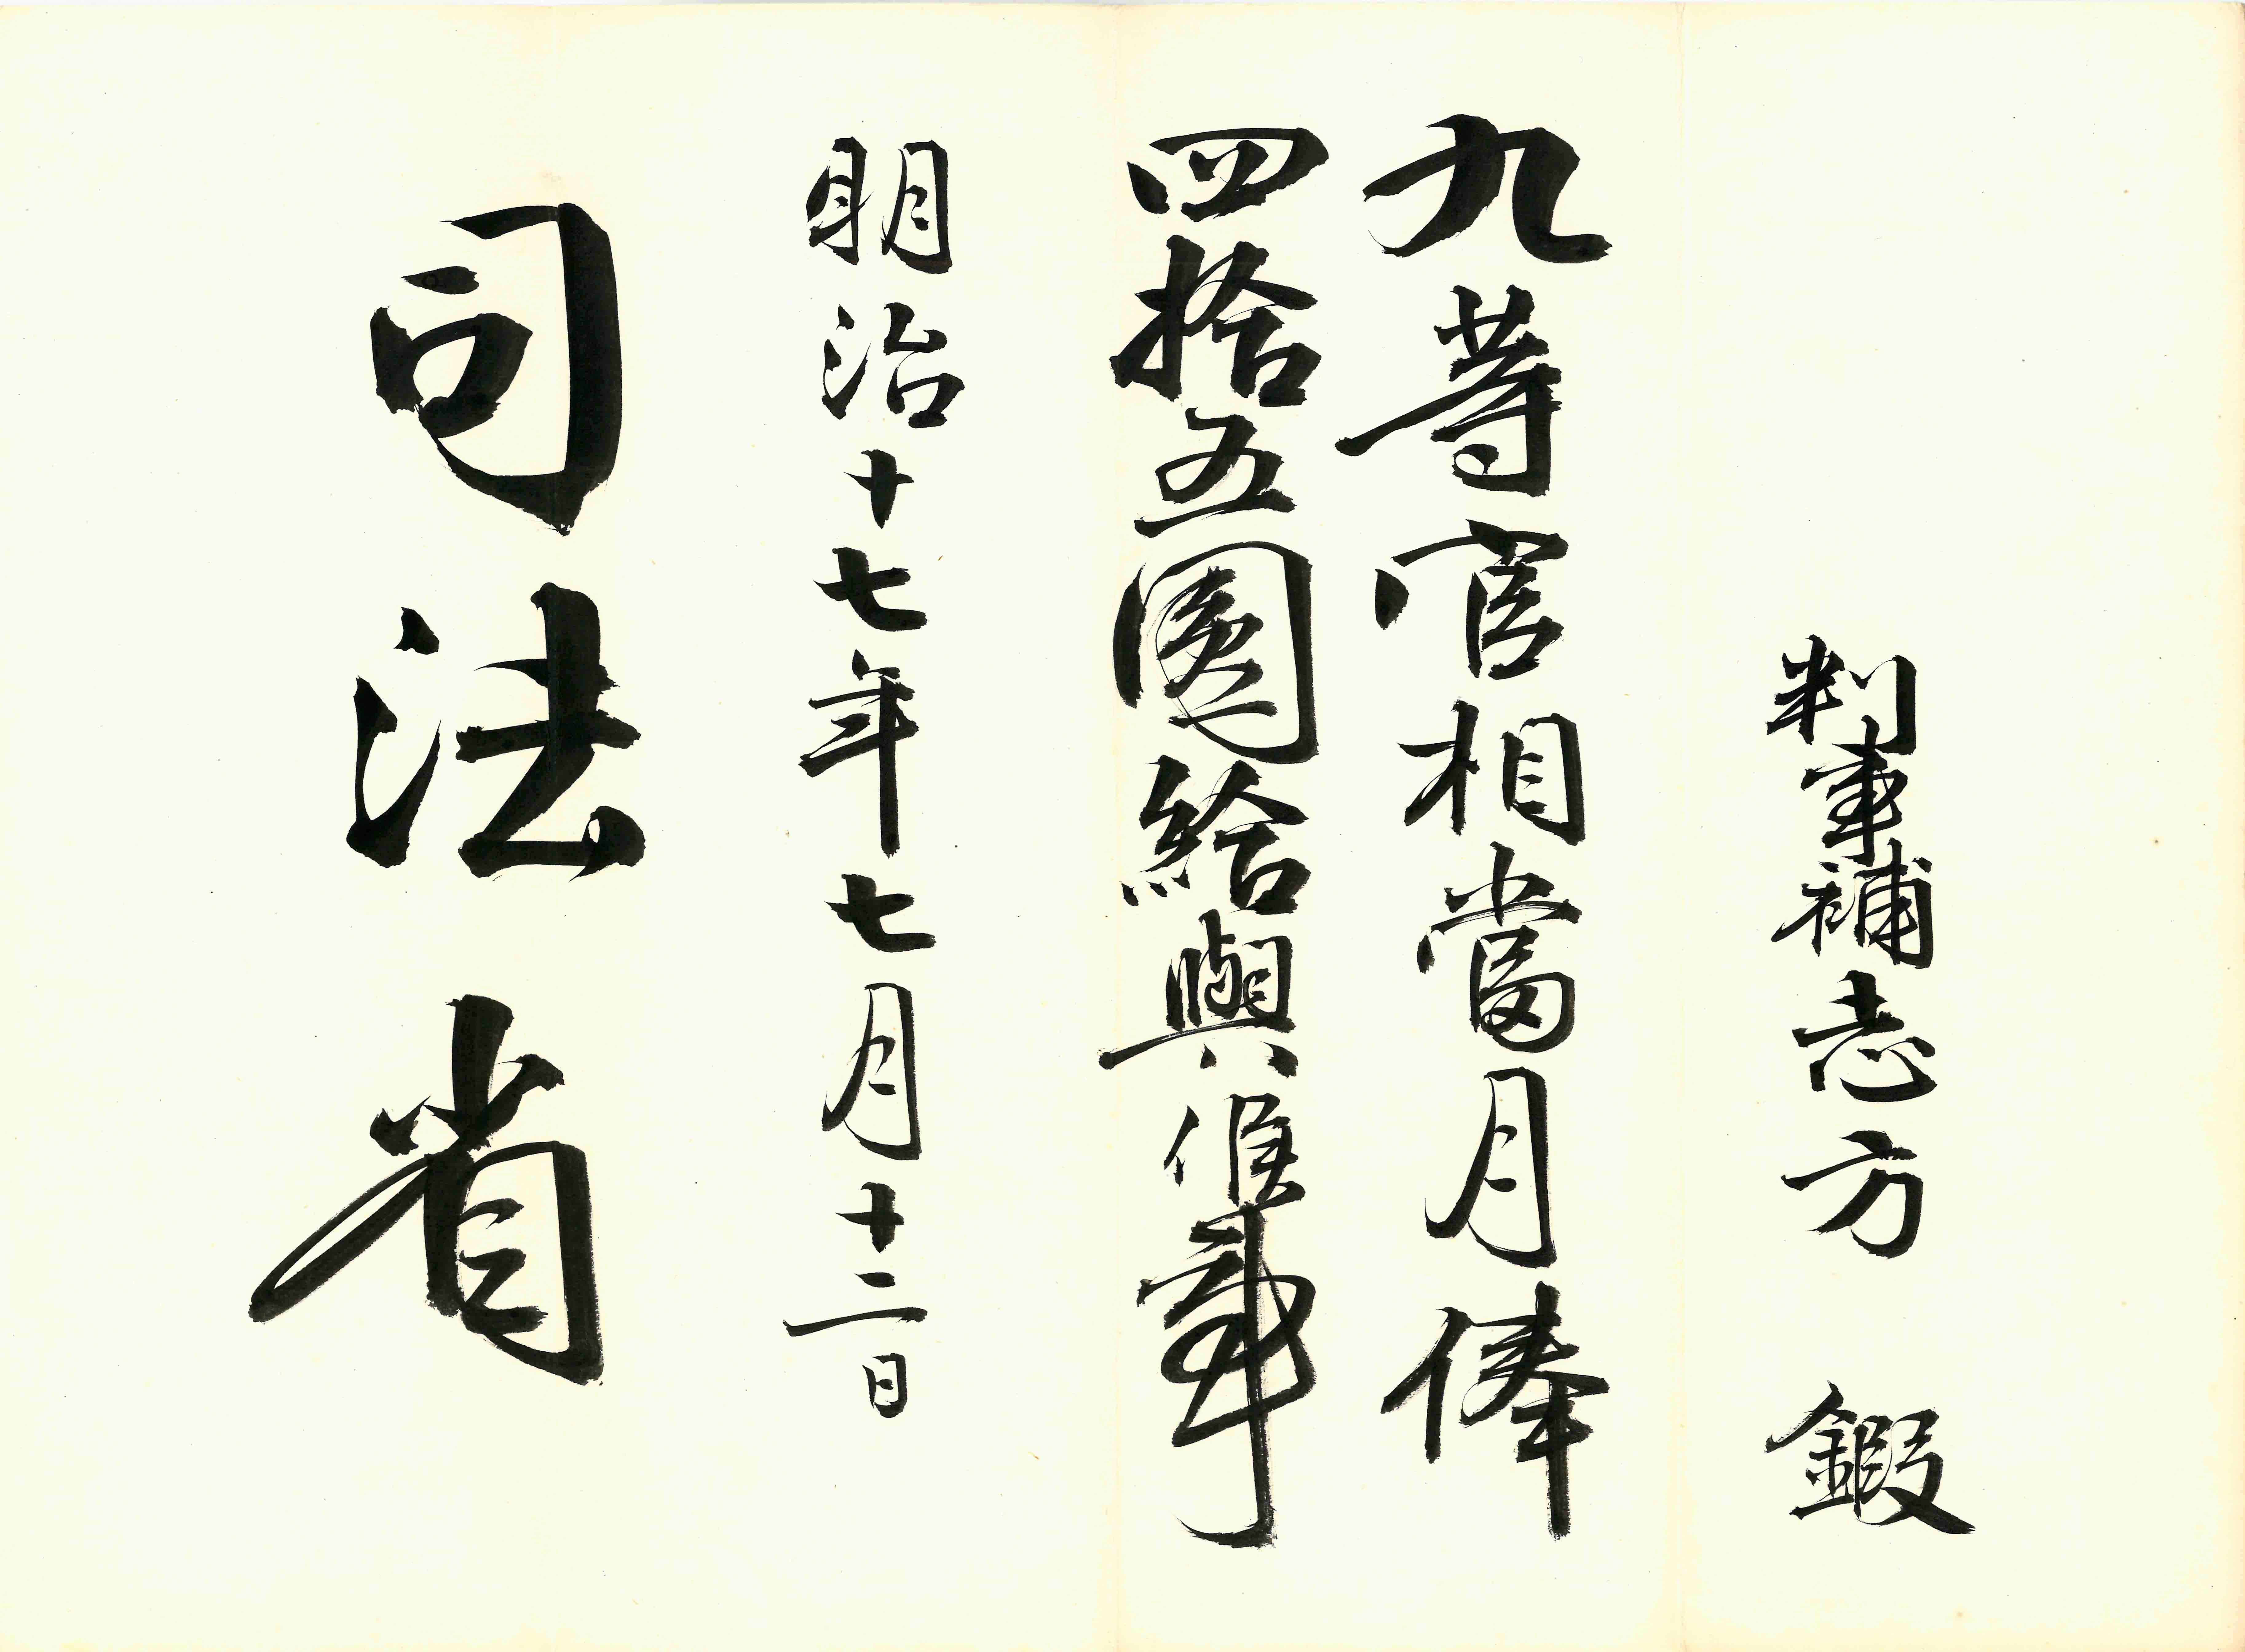 判事補志方 鍜
九等官相當月俸
四拾五圓給與候事
明治十七年七月十二日
司法省